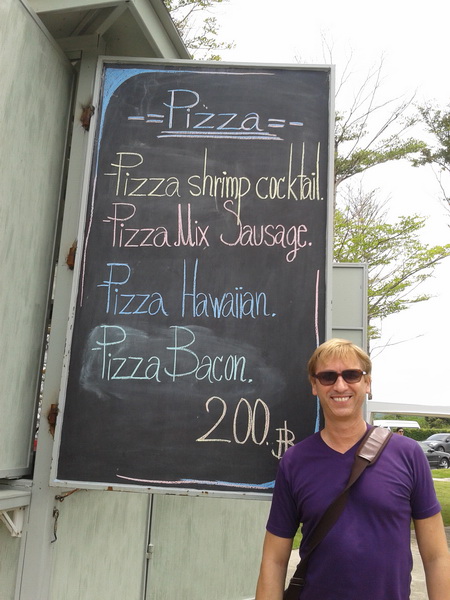 -=Pizza=-
Pizza shrimp cocktail.
Pizza Mix Sausage.
Pizza Hawaiian.
Pizza Bacon.
200.฿